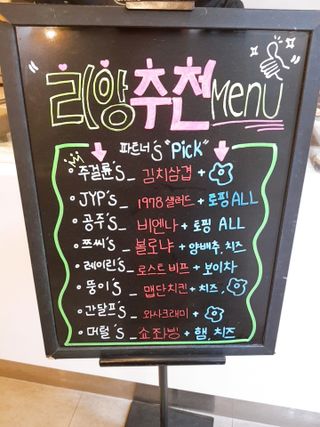 리앙추천 Menu
파트너's "Pick"
• 주걸륜's _ 김치삼겹 +
• JYP's _ 1978 샐러드 + 토핑 ALL
• 공주's _ 비엔나 + 토핑 ALL
• 쯔씨's _ 볼로냐 + 양배추, 치즈
• 레이린's _ 로스트비프 + 보이차
• 뚱이's _ 맵단치킨 + 치즈,
• 간달프's _ 와사크래미 +
• 머털's _ 쇼좌빙 + 햄, 치즈